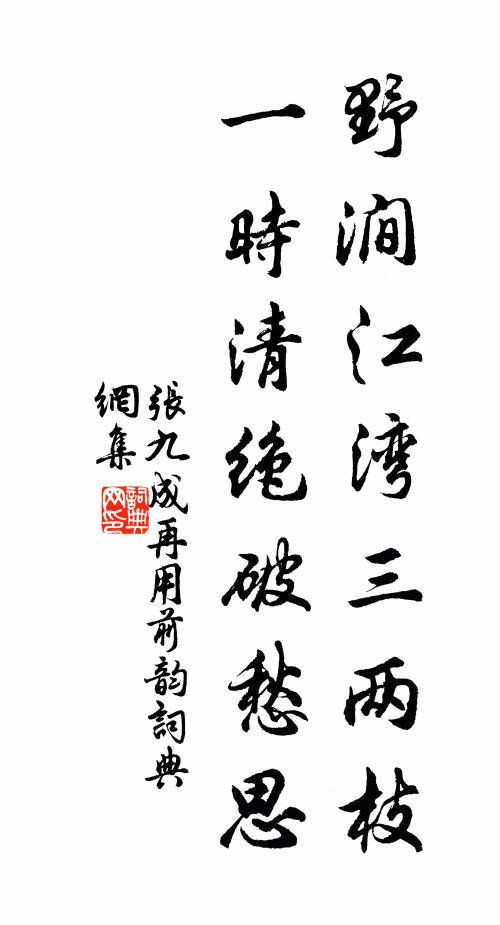 野涧江湾三两枝
一時清绝破愁思
張九成再用前韵詞典
網集
詞典
网印